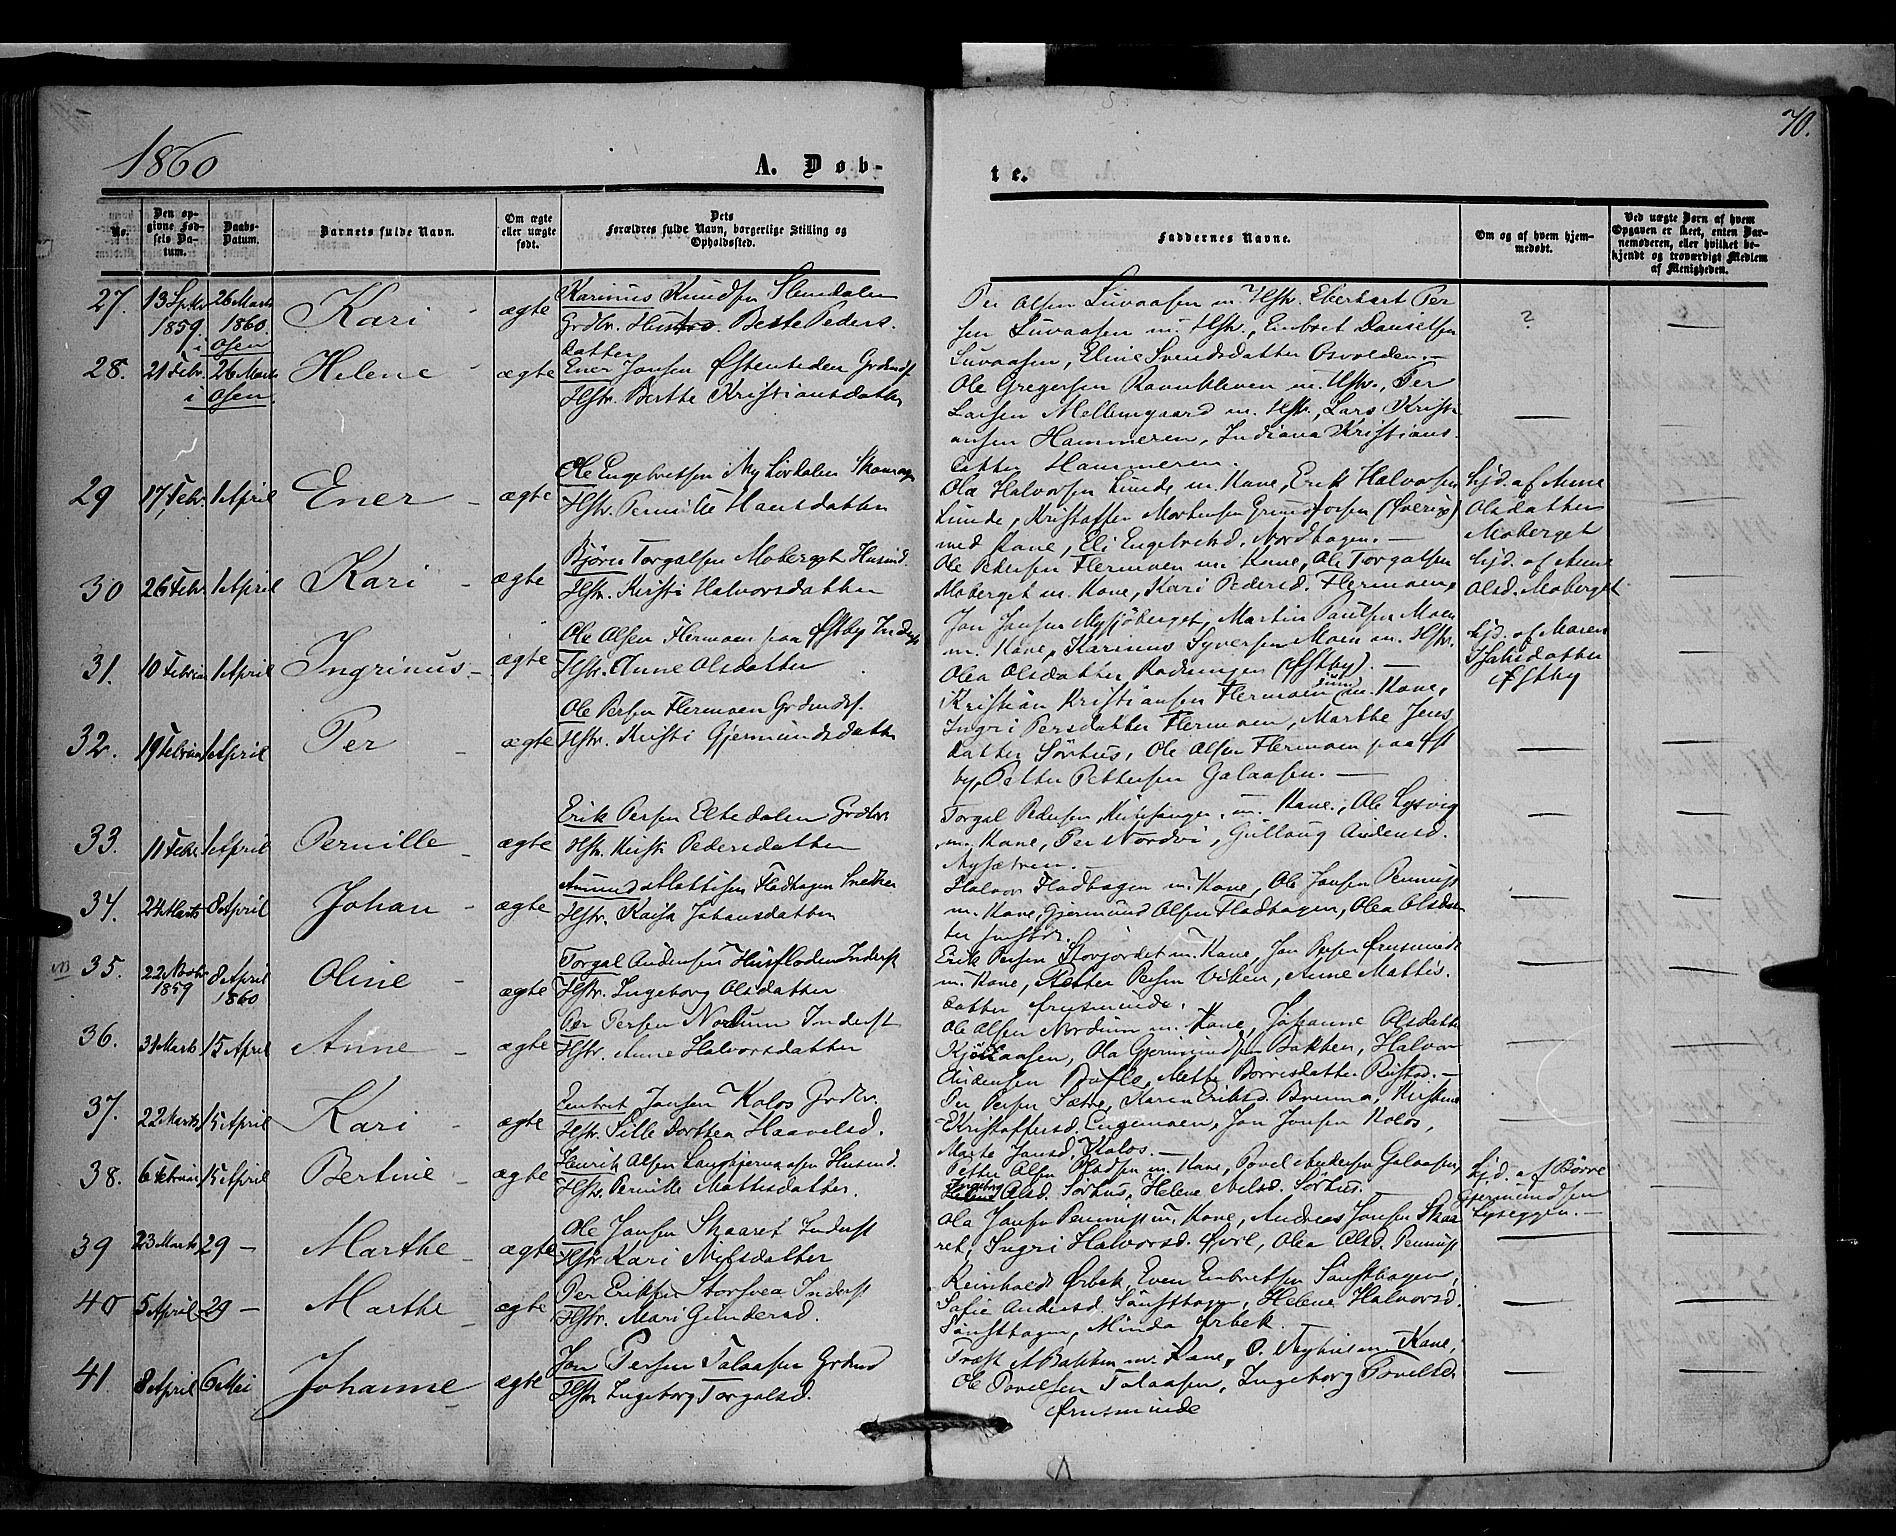 70.
1860
A. Døb-
te.
No.
Den opgivne Fødsels Datum.
Daabs-Datum.
Barnets fulde Navn.
Om ægte eller uægte født.
Dets Forældres fulde Navn, borgerlige Stilling og Opholdssted.
Faddernes Navne.
Om og af hvem hjemmedøbt.
Ved uægte Børn af hvem Opgaven er skeet, enten Barnemoderen, eller hvilket bekjendt og troværdigt Medlem af Menigheden.
27. 13 Sptbr 1859 26 Marts 1860. i Osen Kari ægte
Karinus Knudsen Slemdalen
Grdbr. Hustro. Berte Peders.
datter
Per Olsen Luvaasen m. Hstr. Eberhart Per
sen Luvaasen m. Hstr., Embret Danielsen
Luvaasen, Eline Svendsdatter Osvolden. —
? —
28. 21 Febr. 26 Marts i Osen Helene ægte
Ener Jonsen Østenheden
Hstr. Berthe Kristiansdatter
Ole Gregersen Ravnkleven m. Hstr., Per
Larsen Mellemgaard m. Hstr., Lars Kristi
ansen Hammeren, Indiana Kristians
datter Hammeren.
29 17 Febr. 1 April Ener - ægte
Ole Engebretsen
Hstr. Pernille Hansdatter
Ola Halvorsen Lunde m. Kone, Erik Halvorsen
Lunde, Kristoffer Mortensen Grundforsen (Sverige)
med Kone, Eli Engebretsd. Nordhagen. —
Hjd. af Anne
Olsdatter
Moberget
30 26 Febr. 1 April Kari - ægte
Bjørn Torgalsen Moberget Husmd.
Hstr. Kirsti Halvorsdatter
Ole Pedersen Flermoen m. Kone, Ole Torgalsen
Moberget m. Kone, Kari Pedersd. Flermoen,
Hjd. af Anne
Olsd. Moberget
31. 10 Februar 1 April Ingrinus - ægte
Ole Olsen Flermoen paa Østby Inderst
Hstr. Anne Olsdatter
Jon Jonsen Nysjøberget, Martin Paulsen Moen
m. Kone, Karinus Syversen Moen m. Hstr.
Olea Olsdatter (Østby). —
Hjd. af Maren
Østby
32. 19 Februar 1 April Per - ægte
Ole Persen Flermoen Grdmds.
Hstr. Kristi Gjermundsdatter
Kristian Kristiansen Flermoen m. Kone,
Ingri Persdatter Flermoen, Marthe Jens
datter Sørhus, Ole Olsen Flermoen paa Øst
by, Petter Pettersen Galaasen. —
33. 11 Febr. 1 April Pernille - ægte
Erik Persen Eltedalen Grdbr.
Hstr. Kirsti Pedersdatter
Torgal Pedersen m. Kone, Ole Lysvig
m. Kone, Per Nordvi, Gullaug Andersd.
Nysætren. —
34. 24 Marts 8 April Johan - ægte
Amund Mattisen Fladhagen Snedker
Hstr. Kajsa Johansdatter
Halvor Fladhagen m. Kone, Ole Jonsen
m. Kone, Gjermund Olsen Fladhagen, Olea Olsdat
ter
35. 22 Novbr 1859 8 April 1860 Oline - ægte
Torgal Andersen Husfloden Inderst
Hstr. Ingeborg Olsdatter
Erik Persen Storjordet m. Kone, Jon Persen Ørusmunde
m. Kone, Petter Persen Viken, Anne Mattis-
datter Ørusmunde.
36. 31 Marts 15 April Anne - ægte
Per Persen Nordum Inderst
Hstr. Anne Halvorsdatter
Ole Olsen Nordum m. Kone, Johanne Olsdatter
Kjølaasen, Ola Gjermundsen Bakken, Halvor
Andersen Bufls, Mette Børresdatter Rustad. —
37. 22 Marts 15 April Kari - ægte
Embret Jonsen Kolos Grdbr.
Hstr. Sille Dorthea Haavelsd.
Per Persen Sætre, Karen Eriksd. Brenna, Kirstine
Kristoffersd. Engemoen, Jon Jonsen Kolos,
Marte Jonsd. Kolos. —
38. 6 Februar 15 April Bertine - ægte
Henrik Olsen Husmd.
Hstr. Pernille Mattisdatter.
Petter Olsen m. Kone, Povel Andersen Galaasen,
Ingeborg Olsd. Sørhus, Helene Nilsd. Sørhus.
Hjd. af Børre
Gjermundsen
Lyseggen. —
39 23 Marts 29 — Marthe - ægte
Ole Jonsen Skaaret Inderst
Hstr. Kari Nilsdatter
Ola Jonsen m. Kone, Andreas Jonsen Skaa
ret, Ingri Halvorsd. Øvre, Olea Olsd.
40 5 April 29 — Marthe - ægte
Per Eriksen Storsvea Inderst
Hstr. Mari Gundersd.
Reinholdt Ørbek, Even Embretsen Sønsthagen,
Sofie Andersd. Sønsthagen, Helene Halvorsd.
Sønsthagen, Minda Ørbek.
41 8 April 6 Mai Johanne - ægte
Jon Persen Galaasen Grdmd
Hstr. Ingeborg Torgalsd.
Bakken m. Kone, O. Nyhus m. Kone,
Ole Povelsen Galaasen, Ingeborg Povelsd.
Ørusmunde